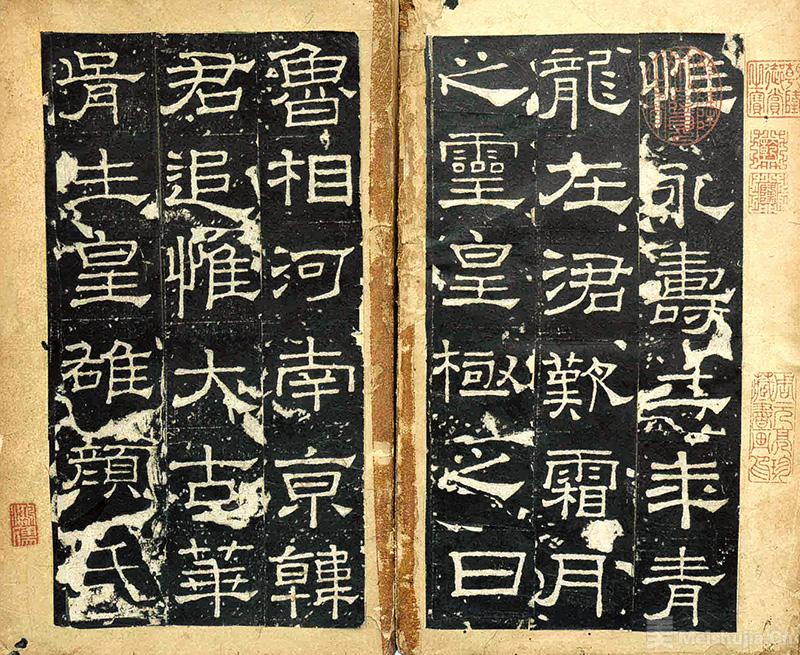 惟永壽二年青
龍在涒歎霜月
之靈皇極之日
魯相河南京韓
君追惟大古華
胥生皇雄顏氏
Meishujia.Cn